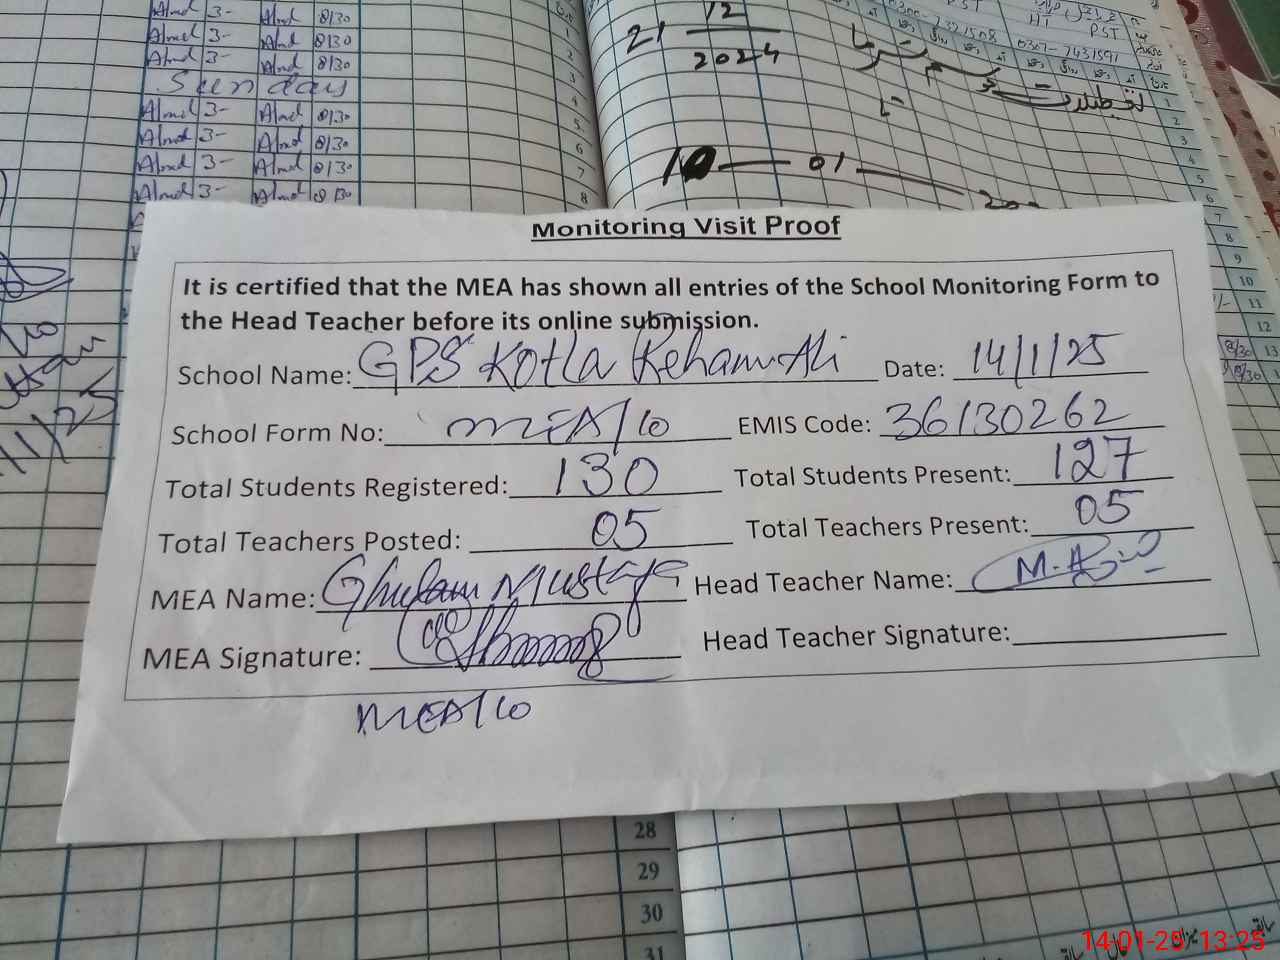 Almd 3- Almd 8/30
Almd 3- Almd 8/30
Almd 3- Almd 8/30
Sunday
Almd 3- Almd 8/30
Almd 3- Almd 8/30
Almd 3- Almd 8/30
Almd 3- Almd 8/30
21 12
2024
PST
HT PST
0307-7431591
تعطیلات موسم سرما
تا
10 — 01 —
Monitoring Visit Proof
It is certified that the MEA has shown all entries of the School Monitoring Form to
the Head Teacher before its online submission.
School Name: GPS Kotla Reham Ali Date: 14/1/25
School Form No: MEA/10 EMIS Code: 36130262
Total Students Registered: 130 Total Students Present: 127
Total Teachers Posted: 05 Total Teachers Present: 05
MEA Name: Ghulam Mustafa Head Teacher Name:
MEA Signature: Head Teacher Signature:
MEA/10
28
29
30
31
14-01-25 13:25